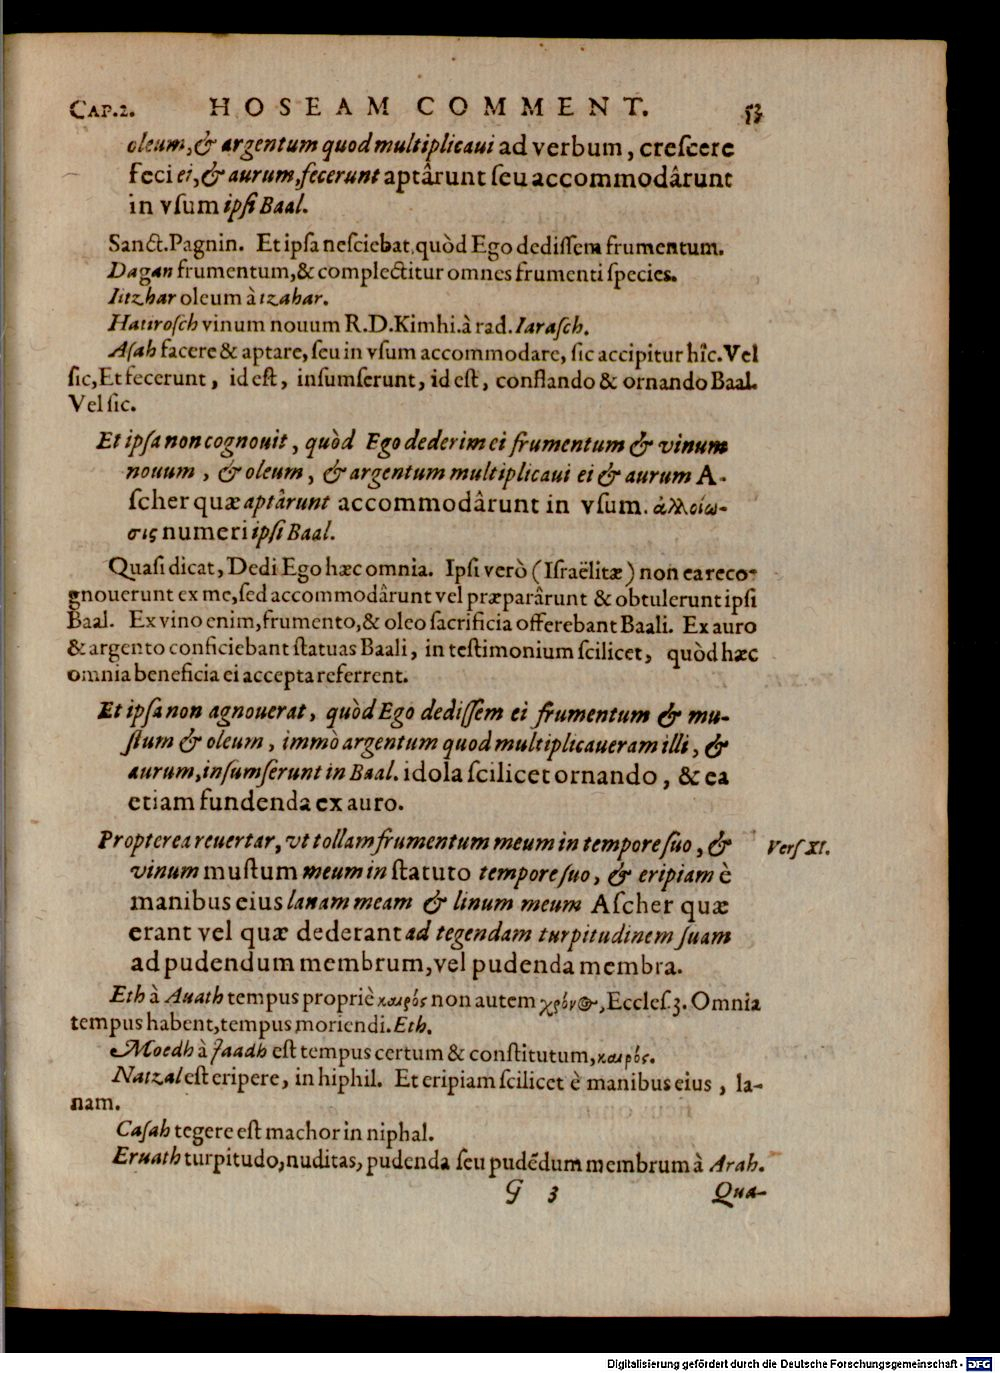 CAP.2. HOSEAM COMMENT. 53
oleum, & argentum quod multiplicaui ad verbum, creſcere
feci ei, & aurum, fecerunt aptârunt ſeu accommodârunt
in vſum ipſi Baal.
Sanct. Pagnin. Et ipſa neſciebat, quòd Ego dediſſem frumentum.
Dagan frumentum, & complectitur omnes frumenti ſpecies.
Iitzhar oleum à tzahar.
Hatiroſch vinum nouum R.D.Kimhi. à rad. Iaraſch.
Aſah facere & aptare, ſeu in vſum accommodare, ſic accipitur hîc. Vel
ſic, Et fecerunt, id eſt, inſumſerunt, id eſt, conflando & ornando Baal.
Vel ſic.
Et ipſa non cognouit, quòd Ego dederim ei frumentum & vinum
nouum, & oleum, & argentum multiplicaui ei & aurum A-
ſcher quæ aptârunt accommodârunt in vſum. ἀλλοίω-
σις numeri ipſi Baal.
Quaſi dicat, Dedi Ego hæc omnia. Ipſi verò (Iſraëlitæ) non ea reco-
gnouerunt ex me, ſed accommodârunt vel præparârunt & obtulerunt ipſi
Baal. Ex vino enim, frumento, & oleo ſacrificia offerebant Baali. Ex auro
& argento conficiebant ſtatuas Baali, in teſtimonium ſcilicet, quòd hæc
omnia beneficia ei accepta referrent.
Et ipſa non agnouerat, quòd Ego dediſſem ei frumentum & mu-
ſtum & oleum, immò argentum quod multiplicaueram illi, &
aurum, inſumſerunt in Baal. idola ſcilicet ornando, & ea
etiam fundenda ex auro.
Propterea reuertar, vt tollam frumentum meum in tempore ſuo, & Verſ XI.
vinum muſtum meum in ſtatuto tempore ſuo, & eripiam è
manibus eius lanam meam & linum meum Aſcher quæ
erant vel quæ dederant ad tegendam turpitudinem ſuam
ad pudendum membrum, vel pudenda membra.
Eth à Auath tempus propriè καιρός non autem χρόνος, Eccleſ.3. Omnia
tempus habent, tempus moriendi. Eth.
Moedh à Jaadh eſt tempus certum & conſtitutum, καιρός.
Natzal eſt eripere, in hiphil. Et eripiam ſcilicet è manibus eius, la-
nam.
Caſah tegere eſt machor in niphal.
Eruath turpitudo, nuditas, pudenda ſeu pudēdum membrum à Arah.
G 3 Qua-
Digitalisierung gefördert durch die Deutsche Forschungsgemeinschaft - DFG